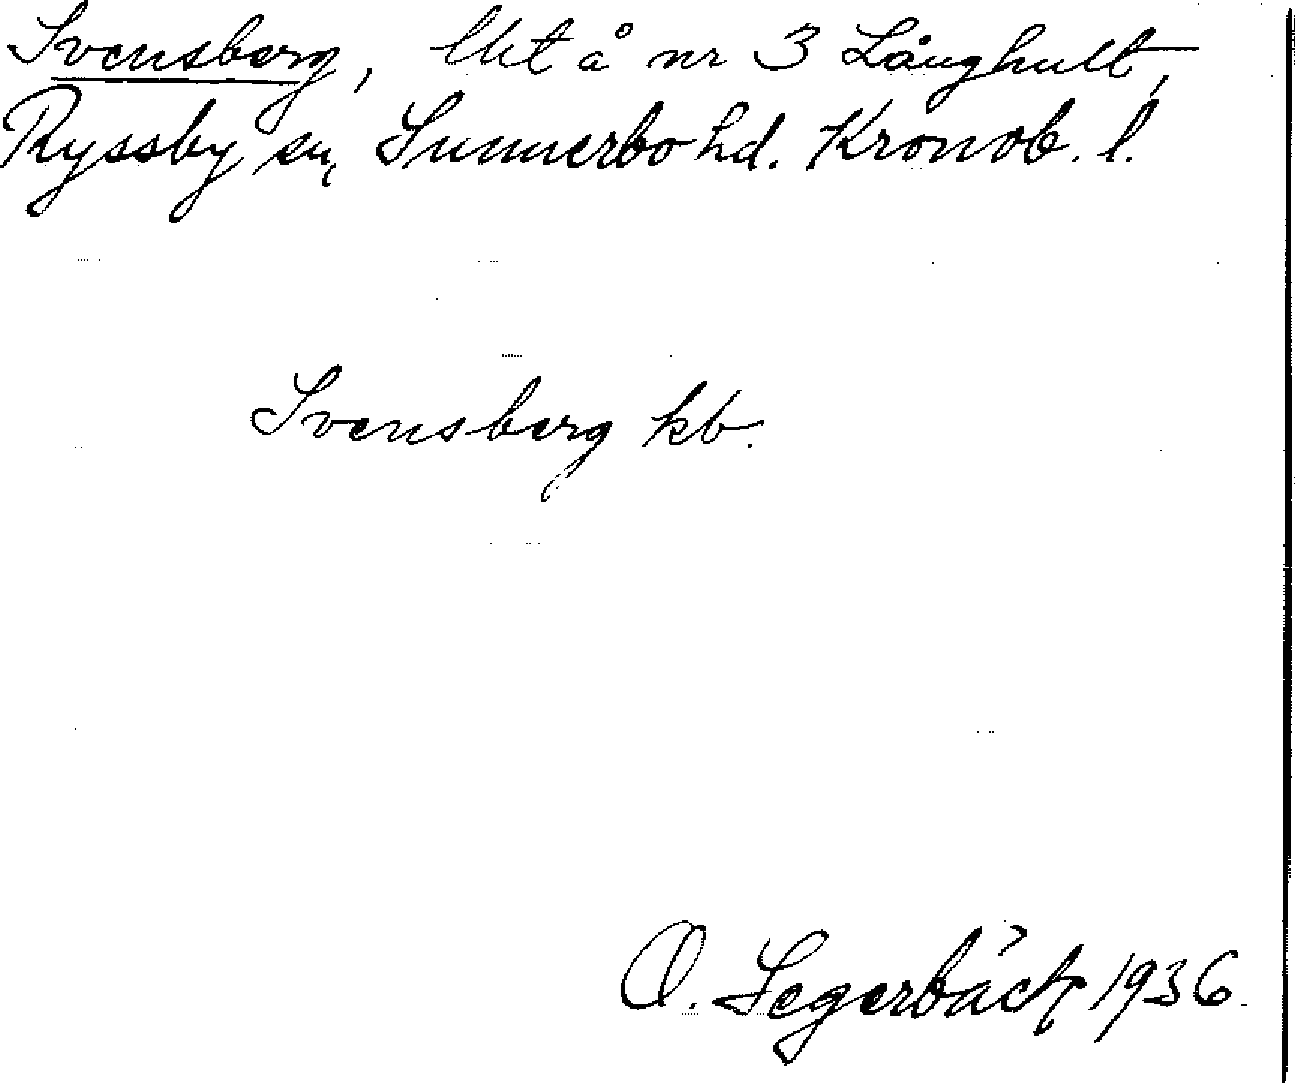 Svensberg, lht å nr 3 Långhult,
Ryssby sn, Sunnerbo hd. Kronob. l.
Svensberg kb.
O. Segerbäck 1936.